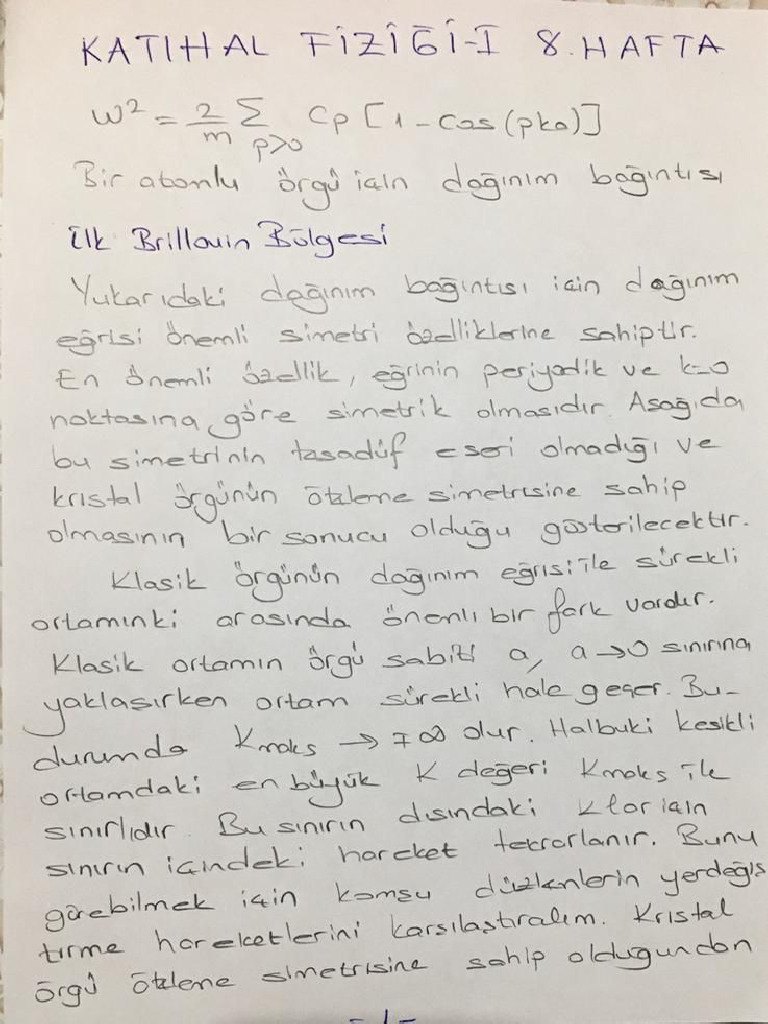 KATIHAL FİZİĞİ-I 8. HAFTA
w² = 2/m Σ p>0 Cp [1 - Cos(pka)]
Bir atomlu örgü için dağınım bağıntısı
İlk Brillouin Bölgesi
Yukarıdaki dağınım bağıntısı için dağınım
eğrisi önemli simetri özelliklerine sahiptir.
En önemli özellik, eğrinin periyodik ve k=0
noktasına göre simetrik olmasıdır. Asağıda
bu simetrinin tasadüf eseri olmadığı ve
kristal örgünün öteleme simetrisine sahip
olmasının bir sonucu olduğu gösterilecektir.
Klasik örgünün dağınım eğrisi ile sürekli
ortamınki arasında önemli bir fark vardır.
Klasik ortamın örgü sabiti a, a→0 sınırına
yaklasırken ortam sürekli hale geçer. Bu-
durumda Kmaks → ∓∞ olur. Halbuki kesikli
ortamdaki en büyük K değeri Kmaks ile
sınırlıdır. Bu sınırın dısındaki k lar için
sınırın içindeki hareket tekrarlanır. Bunu
görebilmek için komsu düzlemlerin yerdeğis
tirme hareketlerini karsılastıralım. Kristal
örgü öteleme simetrisine sahip olduğundan
-1-